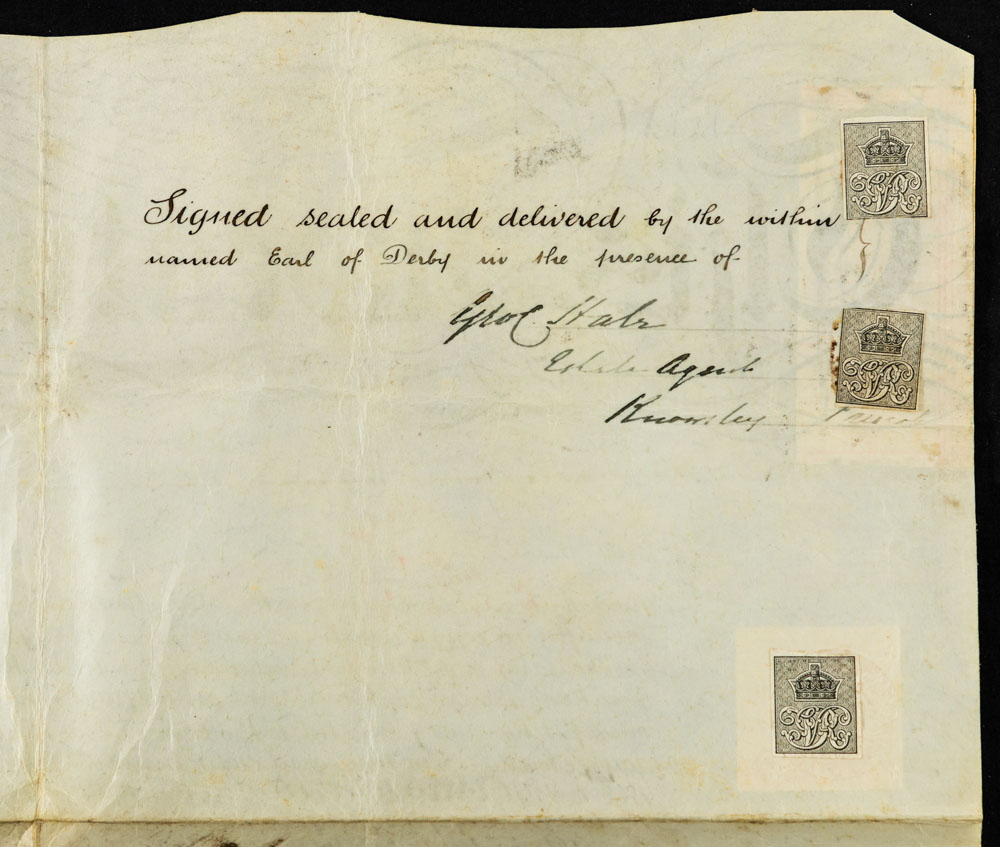 Signed sealed and delivered by the within
named Earl of Derby in the presence of
Geo C. Hale
Estate Agent
Knowsley
VR
VR
VR